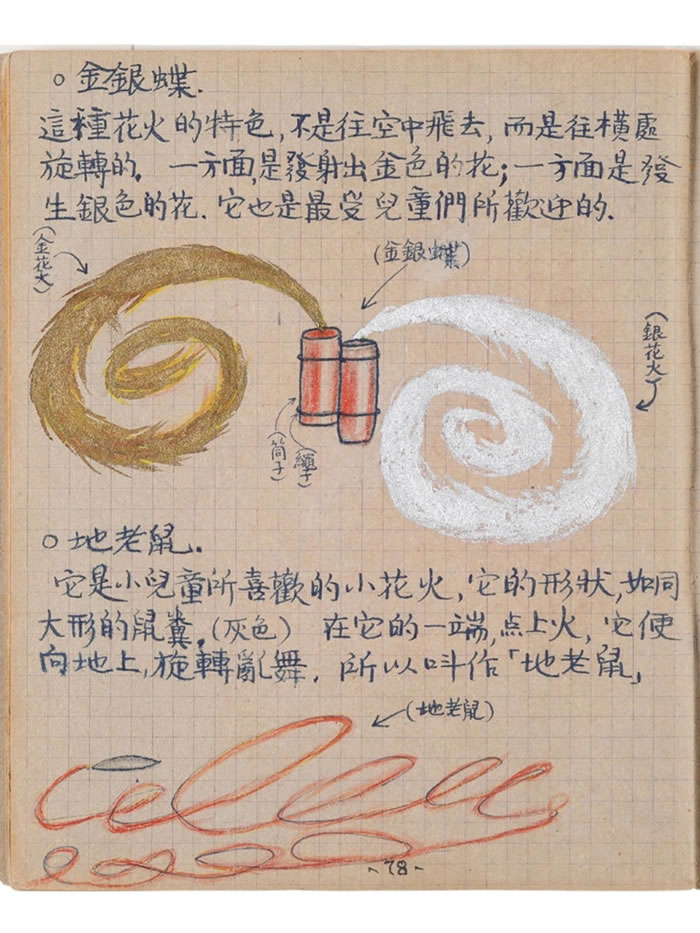 ○ 金銀蝶.
這種花火的特色,不是往空中飛去,而是往橫處
旋轉的. 一方面,是發射出金色的花;一方面是發
生銀色的花.它也是最受兒童們所歡迎的.
(金花火)
(金銀蝶)
(銀花火)
(筒子)
(繩子)
○ 地老鼠.
它是小兒童所喜歡的小花火,它的形狀,如同
大形的鼠糞,(灰色) 在它的一端,点上火,它便
向地上,旋轉亂舞. 所以叫作「地老鼠」
(地老鼠)
-78-